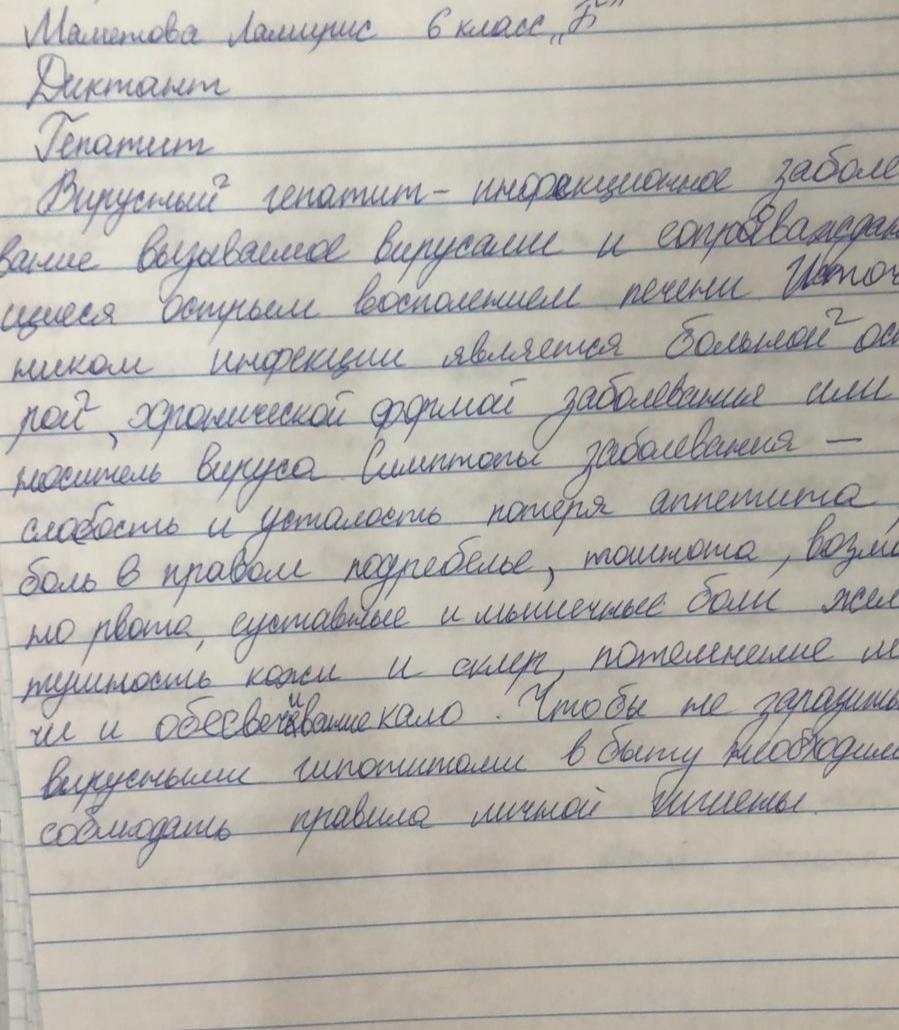 Маметова Ламирис 6 класс „Б"
Диктант
Гепатит
Вирусный гепатит - инфекционное заболе
вание вызываемое вирусами и сопроваждаю
щиеся острым восполением печени Источ
ником инфекции является больной ост
рой, хронической формой заболевания или
носитель вируса. Симптомы заболевания —
слабость и усталость потеря аппетита
боль в правом подребелье, тошнота, возмо
но рвота, суставные и мышечные боли жел
тушность кожи и склер, потемнение мо
чи и обесвечивание кало. Чтобы не заразить
вирусными гипотитами в быту необходим
соблюдать правила личной гигиены.